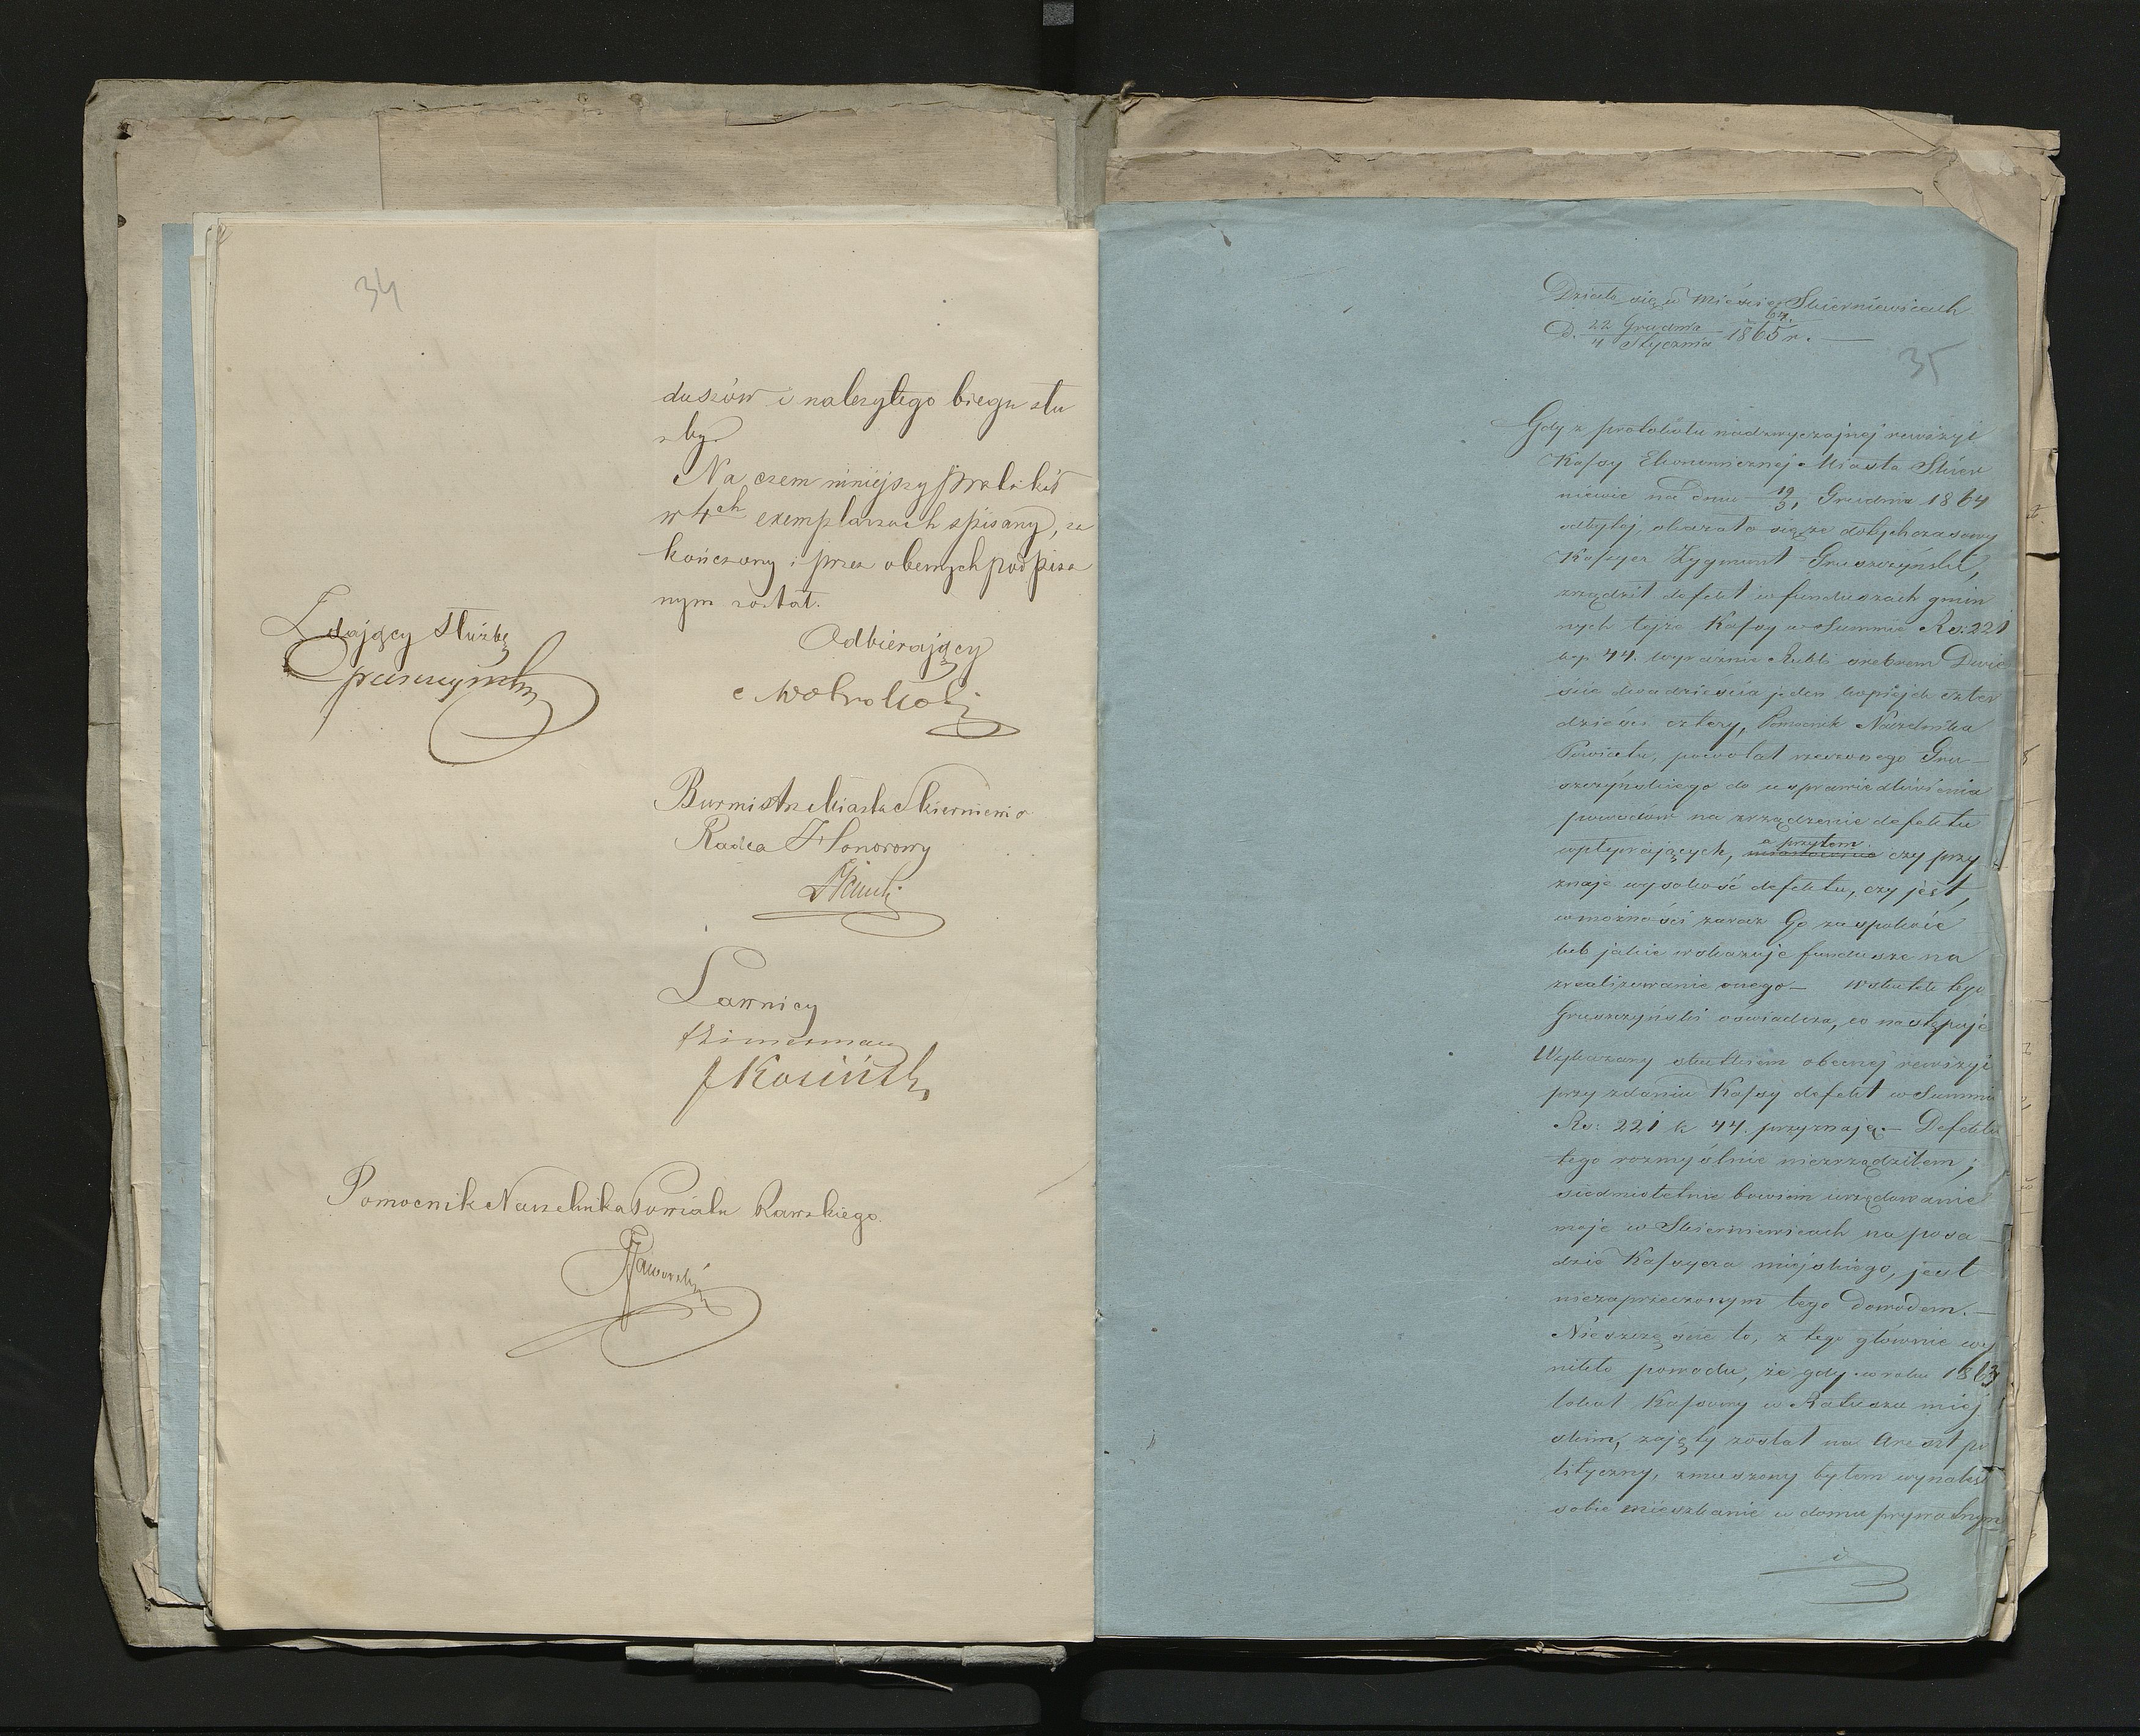 34
duszów i należytego biegu słu
żby
Na czem niniejszy protokół
w 4ch exemplarzach spisany, za
kończony i przez obecnych podpisa
nym został.
Zdający służbę
Gruszczyński
Odbierający
Burmistrz Miasta Skierniewic
Radca Honorowy
Ławnicy
Zimerman
J Kosiński
Pomocnik Naczelnika Powiatu Rawskiego.
Jaworski
Działo się w Mieście Skierniewicach
D. 22 Grudnia / 4 Stycznia 1864/1865 r.
35
Gdy z protokółu nadzwyczajnej rewizyi
Kassy Ekonomicznej Miasta Skier
niewic na dniu 19/31 Grudnia 1864
odbytej, okazało się że dotychczasowy
Kassyer Zygmunt Gruszczyński,
zrządził defekt w funduszach gmin
nych tejże Kassy w Summie Rs: 221
kop 44. wyraźnie Rubli srebrem Dwie
ście dwadzieścia jeden kopiejek czter
dzieści cztery, Pomocnik Naczelnika
Powiatu, powołał rzeczonego Gru-
szczyńskiego do usprawiedliwienia
powodów na zrządzenie defektu
wpływających, a przytem czy przy
znaje wysokość defektu, czy jest
w możności zaraz Go zaspokoić
lub jakie wskazuje fundusze na
zrealizowanie onego – Wskutek tego
Gruszczyński oświadcza, co następuje
Wykazany skutkiem obecnej rewizyi
przy zdaniu Kassy defekt w Summie
Rs: 221 k 44. przyznaję. – Defektu
tego rozmyślnie niezrządziłem;
siedmioletnie bowiem urzędowanie
moje w Skierniewicach na posa
dzie Kassyera miejskiego, jest
niezaprzeczonym tego dowodem. –
Nieszczęście to, z tego głównie wy
nikło powodu, że gdy w roku 1863
lokal Kassowy w Ratuszu miej
skim, zajęty został na Areszt po
lityczny, zmuszony byłem wynaleść
sobie mieszkanie w domu prywatnym
i